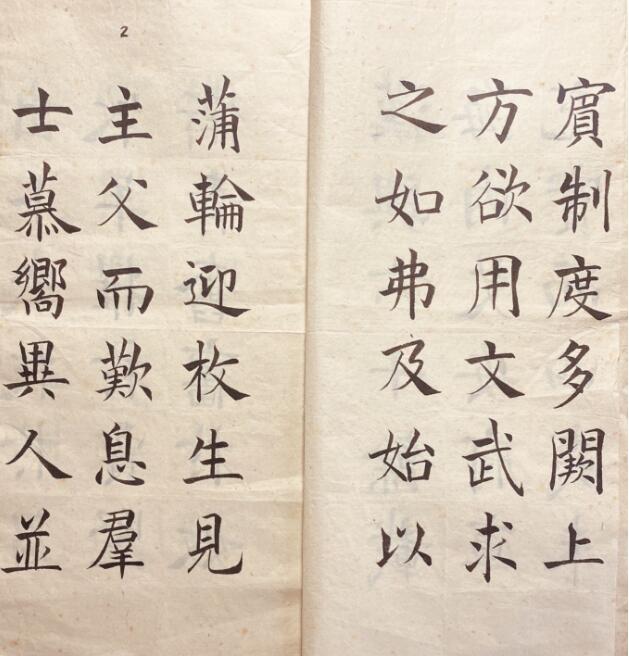 賓制度多闕上
方欲用文武求
之如弗及始以
2
蒲輪迎枚生見
主父而歎息羣
士慕嚮異人並